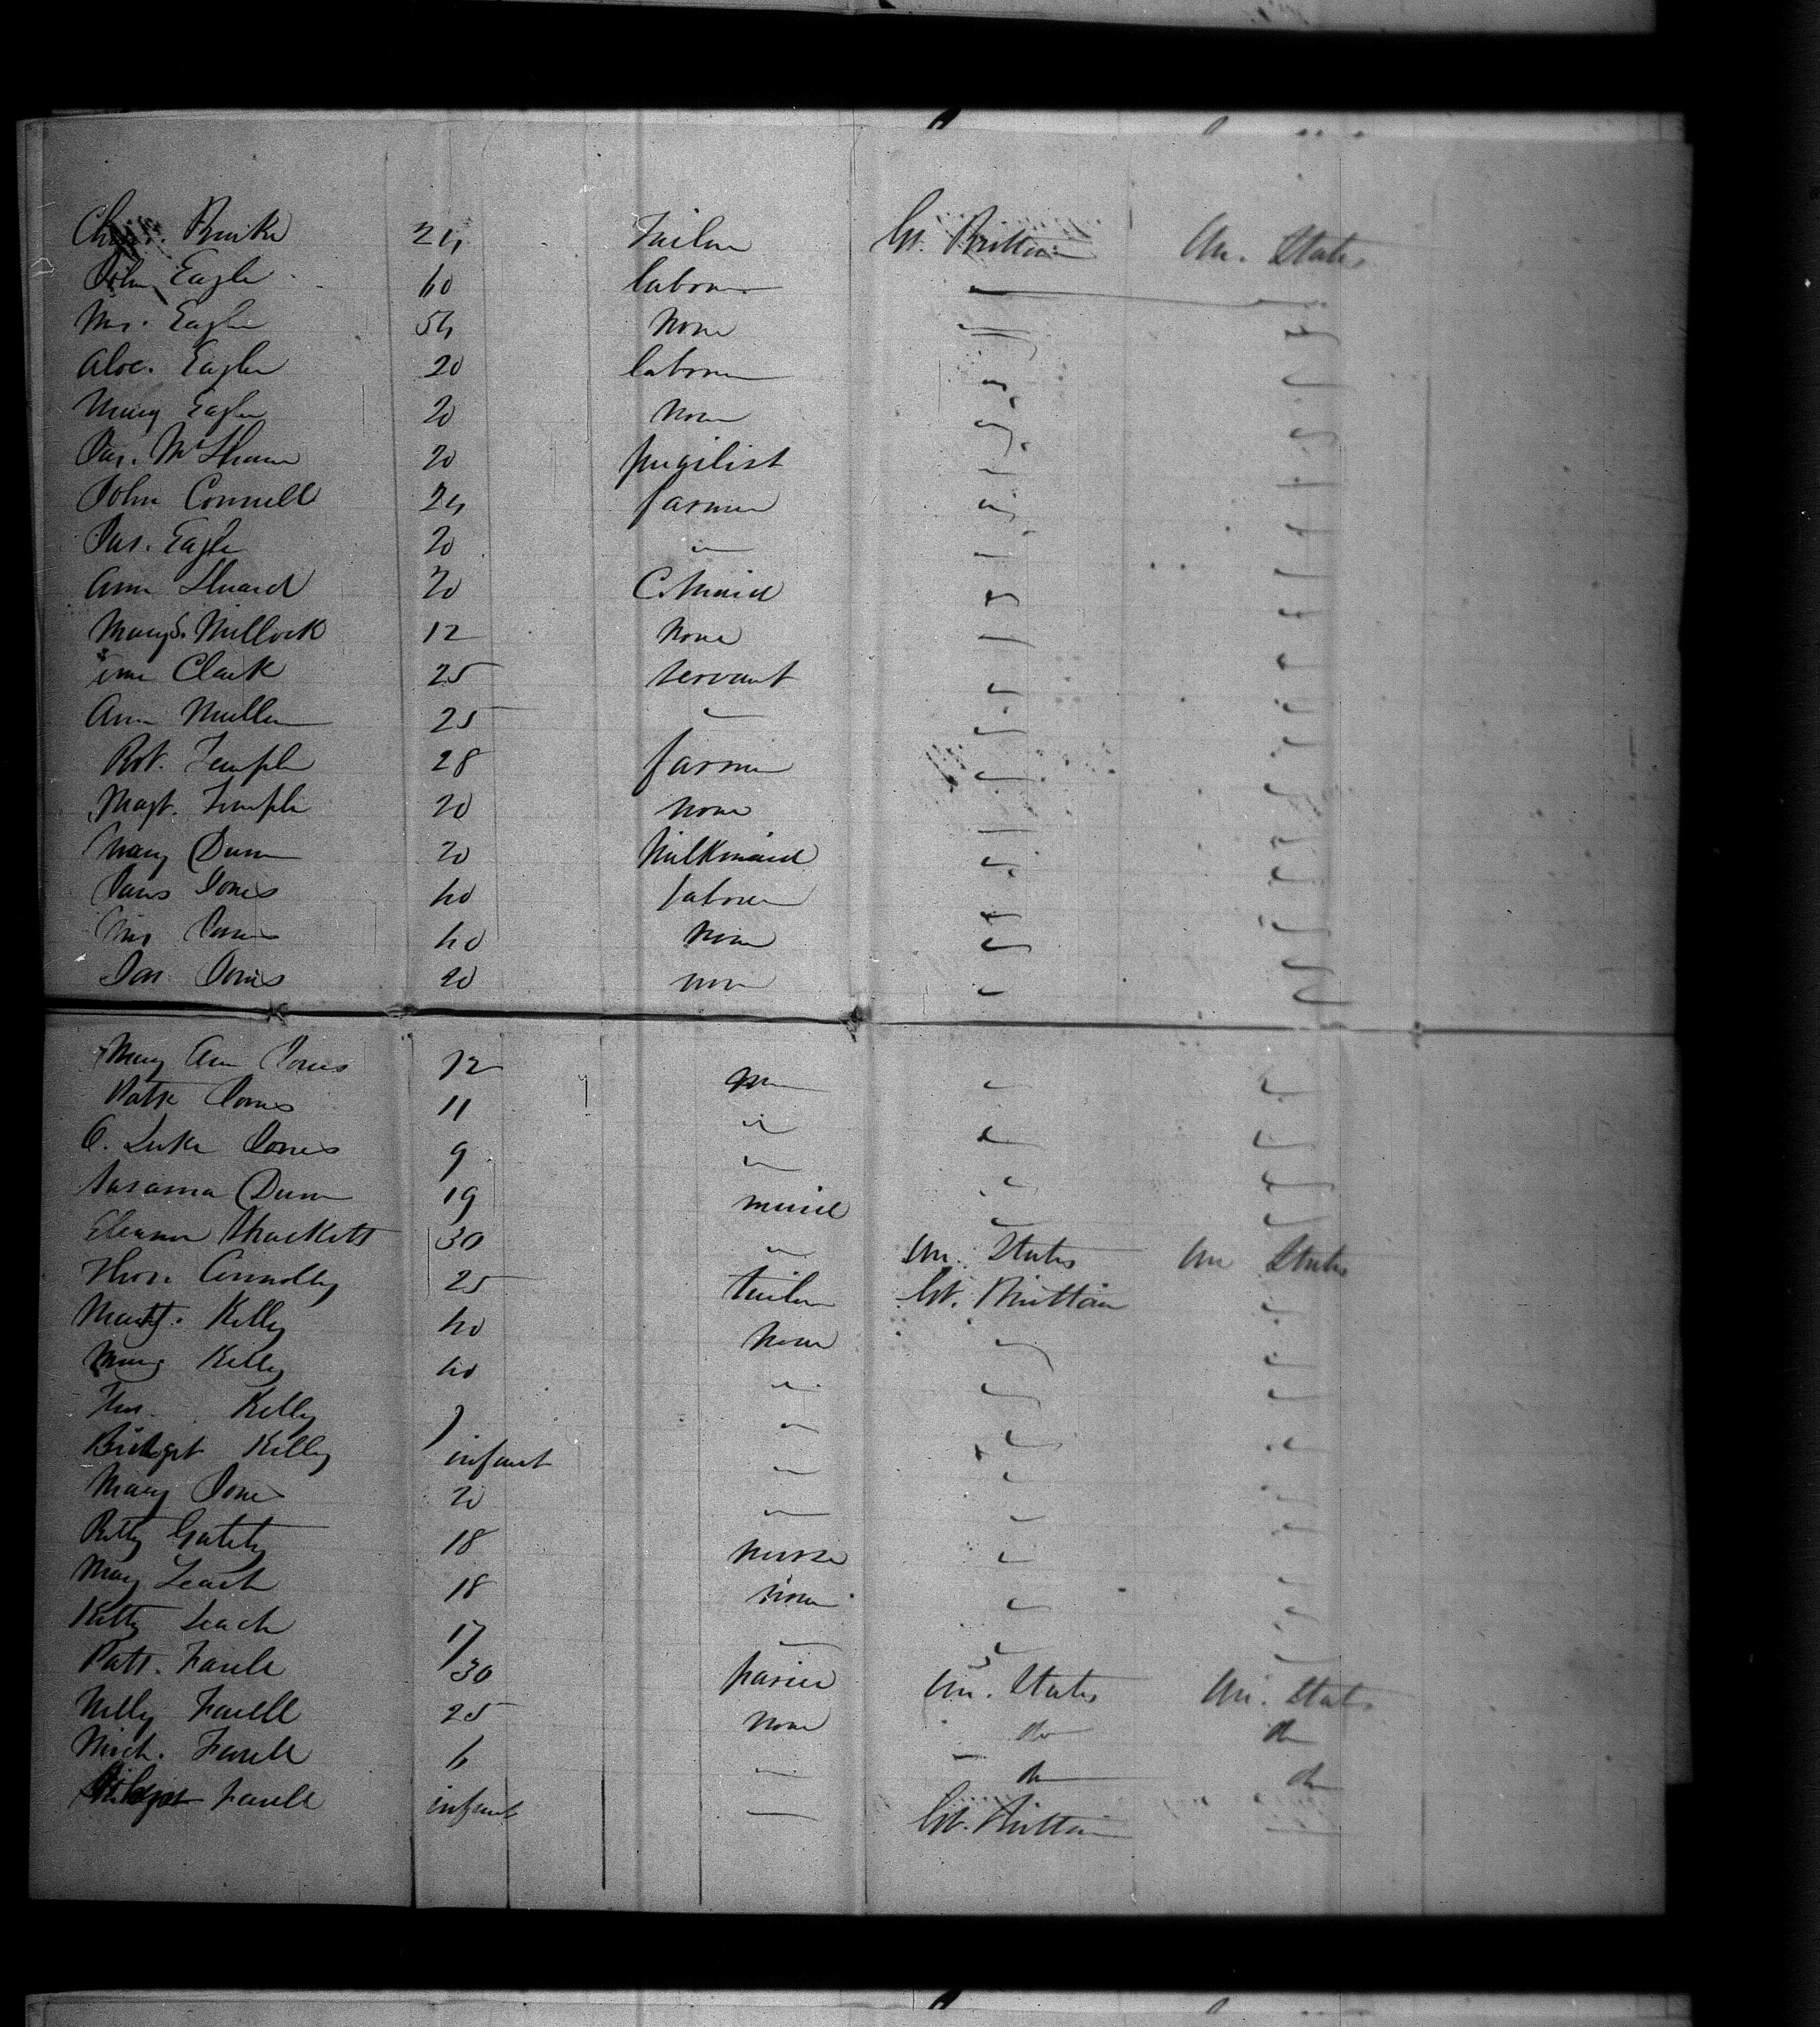 Burke 24 Tailor Gt. Brittain Un. States
John Eagle 60 labourer "
Mrs. Eagle 54 none " "
Alex. Eagle 20 labourer " "
Mary Eagle 20 none " "
Jas. 20 pugilist " "
John Connell 24 farmer " "
Jas. Eagle 20 " " "
Ann 20 C. Maid " "
Mary S. 12 none " "
Clark 25 servant " "
Ann Mullen 25 " " "
Robt. Temple 28 farmer " "
Magt. Temple 20 none " "
Mary Dunn 20 Milkmaid " "
Jones 40 labourer " "
Mrs Jones 40 none " "
Jones 20 none " "
Mary Ann Jones 12 " "
Patk Jones 11 " " "
C. Luke Jones 9 " " "
Susanna Dunn 19 maid "
Eleanor 30 " Un. States Un States
Thos. Connolly 25 tailor Gt. Brittain "
Kelly 40 none " "
Mary Kelly 40 " " "
Thos. Kelly 7 " " "
Bridget Kelly infant " " "
Mary Jones 20 " " "
18 nurse " "
Mary Leach 18 none " "
Kitty Leach 17 " " "
Patk. Farell 30 Un. States Un. States
Nelly Farell 25 none do do
Mich. Farell 6 " do do
Farell infant " Gt. Brittain "